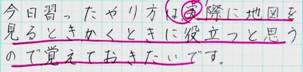 今日習ったやり方は実際に地図を
見るときかくときに役立つと思う
ので覚えておきたいです。